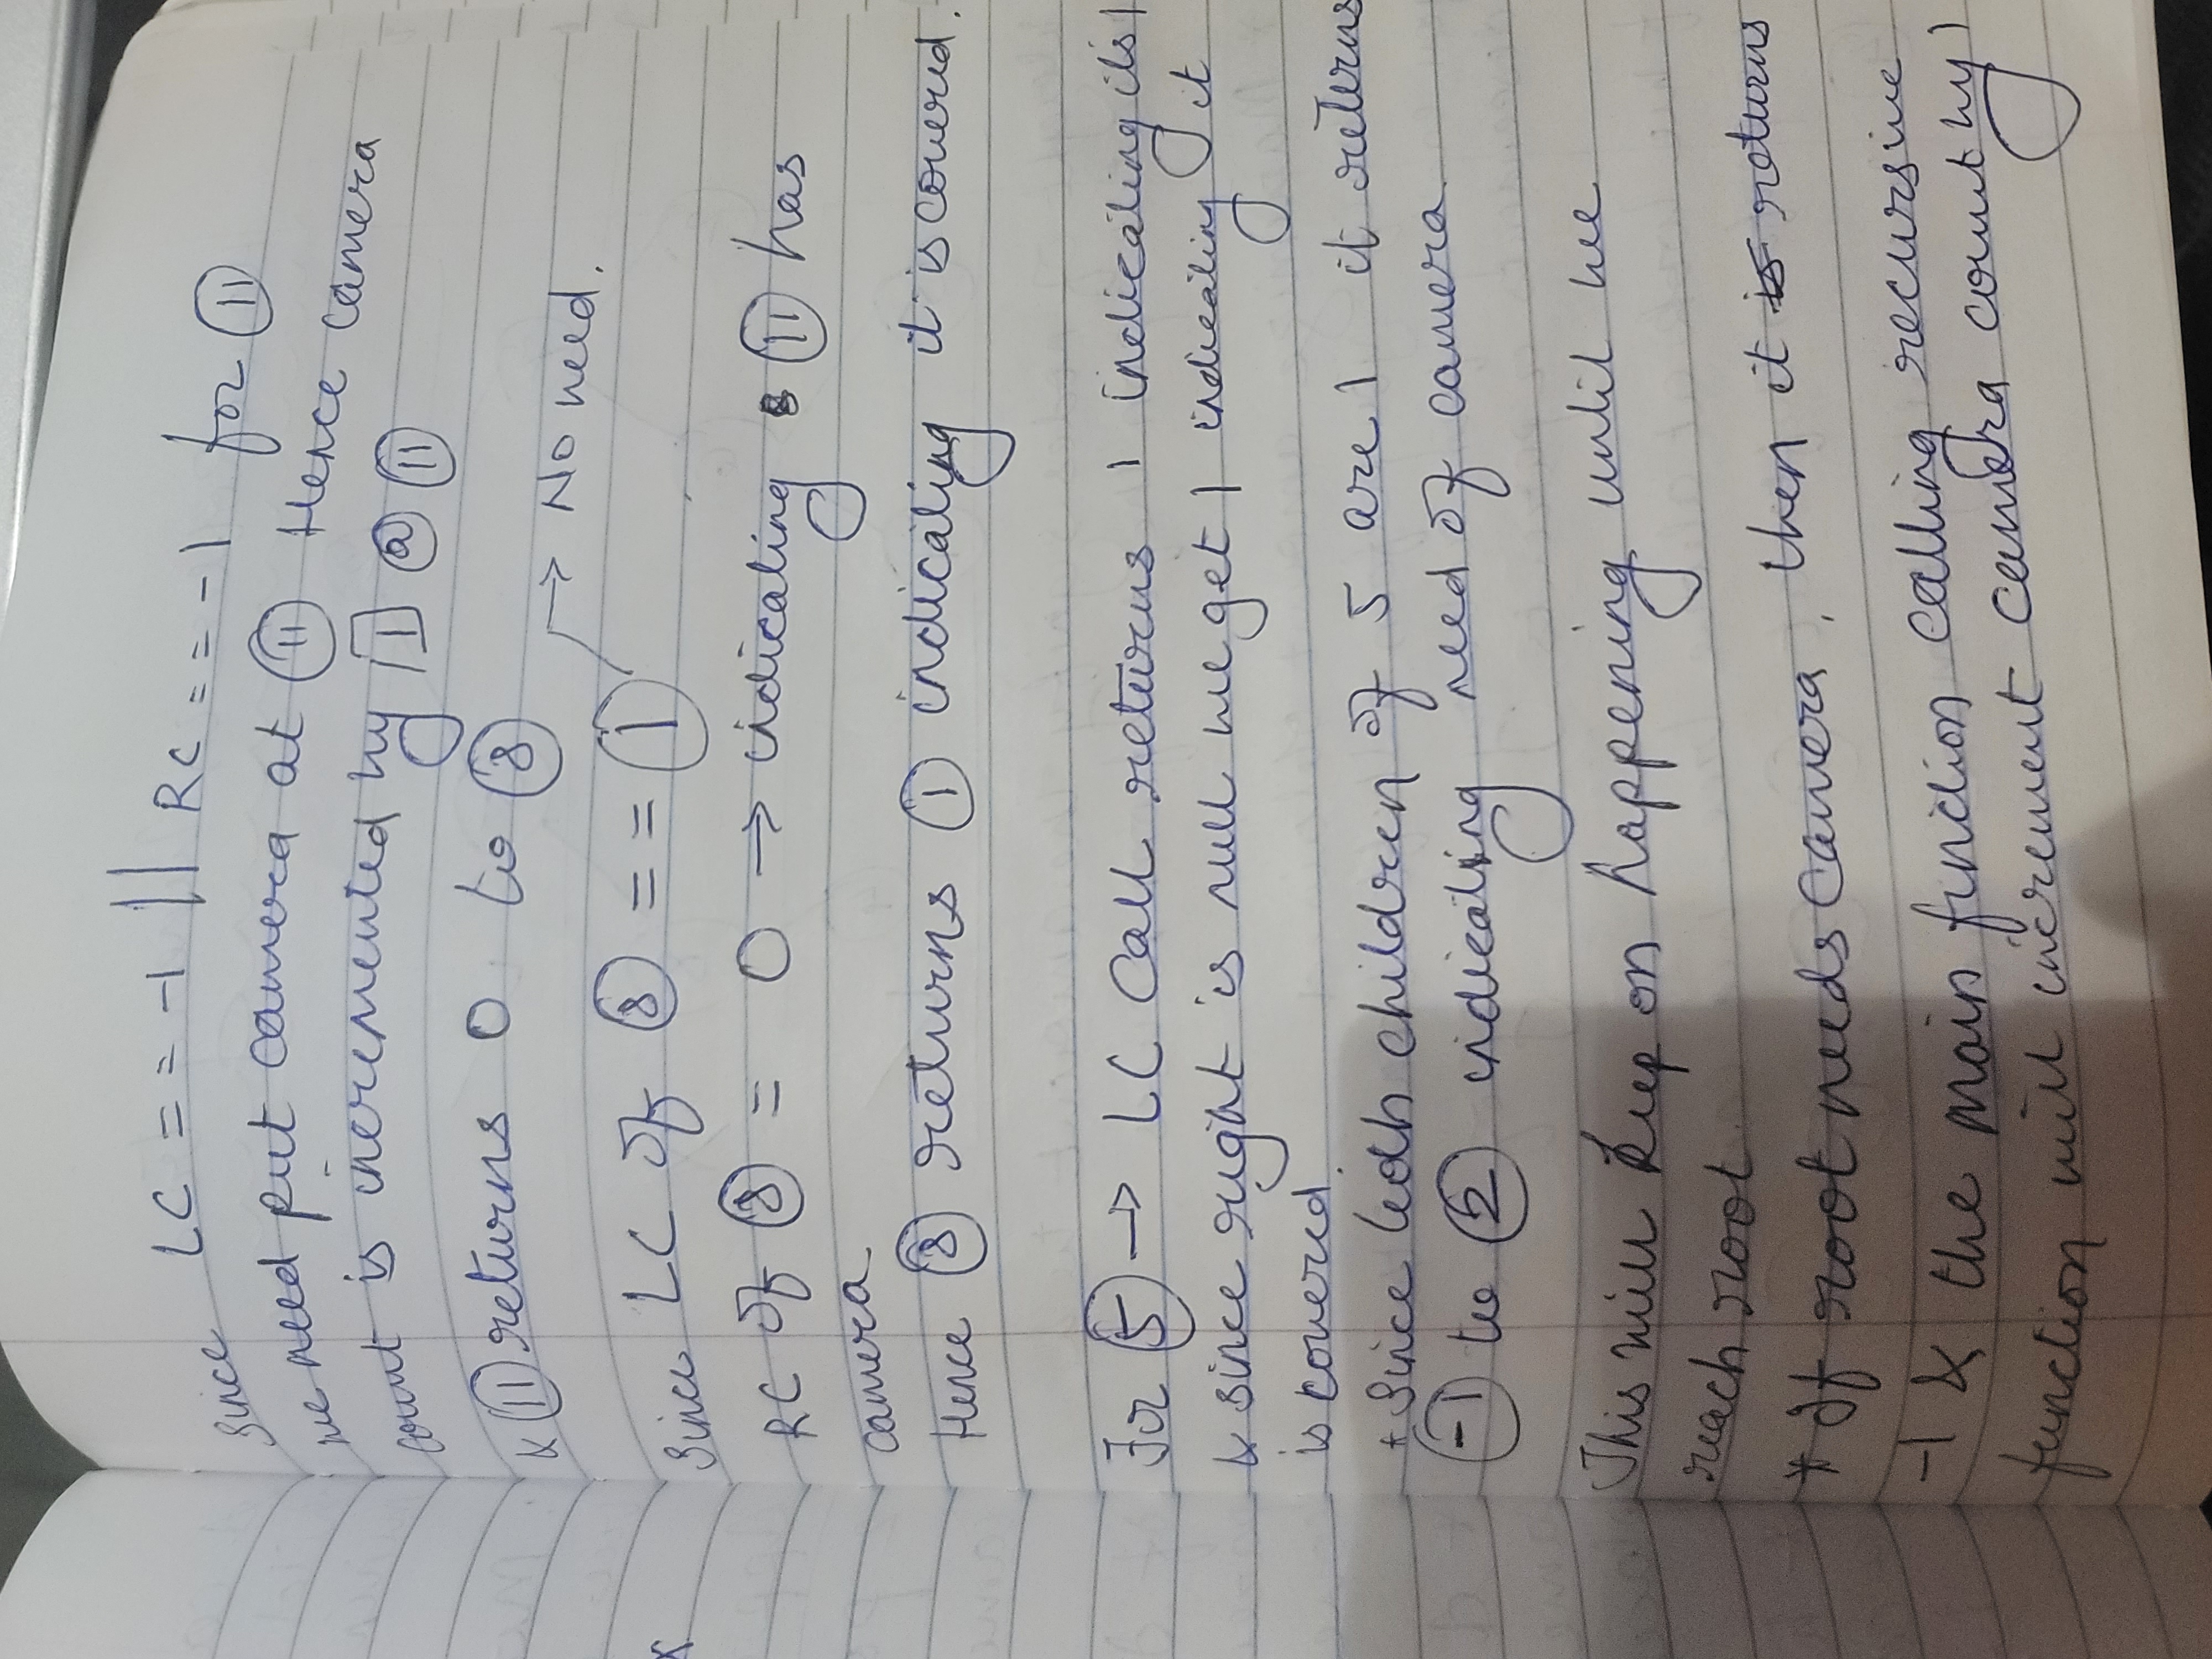 Since LC == -1 || RC == -1 for 11
we need put camera at 11 Hence camera
count is incremented by 1 @ 11
& 11 returns 0 to 8
→ No need.
Since LC of 8 == 1
RC of 8 = 0 → indicating 11 has
camera
Hence 8 returns 1 indicating it is covered.
For 5 → LC call returns 1 indicating its 1
& since right is null we get 1 indicating it
is covered.
+ Since both children of 5 are 1 it returns
-1 to 2 indicating need of camera
This will keep on happening until we
reach root
* If root needs camera, then it is returns
-1 & the main function calling recursive
function will increment camera count by 1